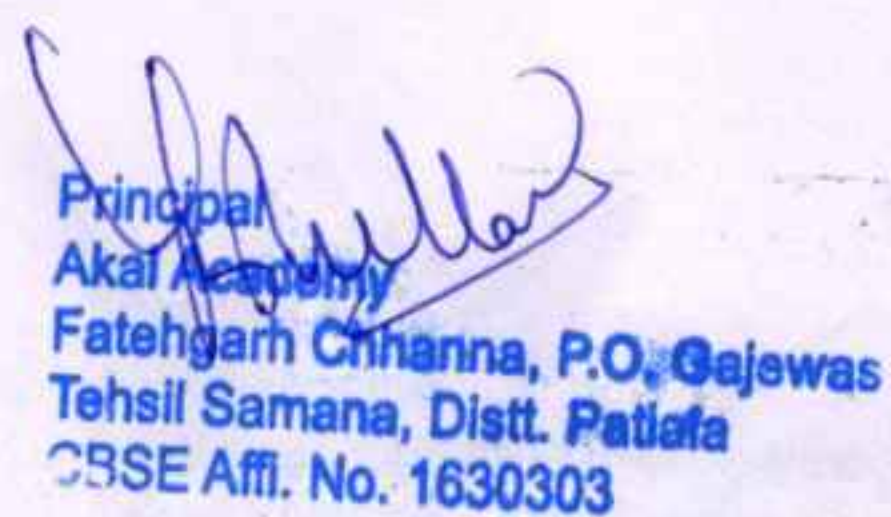 Principal
Akal Academy
Fatehgarh Chhanna, P.O. Gajewas
Tehsil Samana, Distt. Patiala
CBSE Affi. No. 1630303